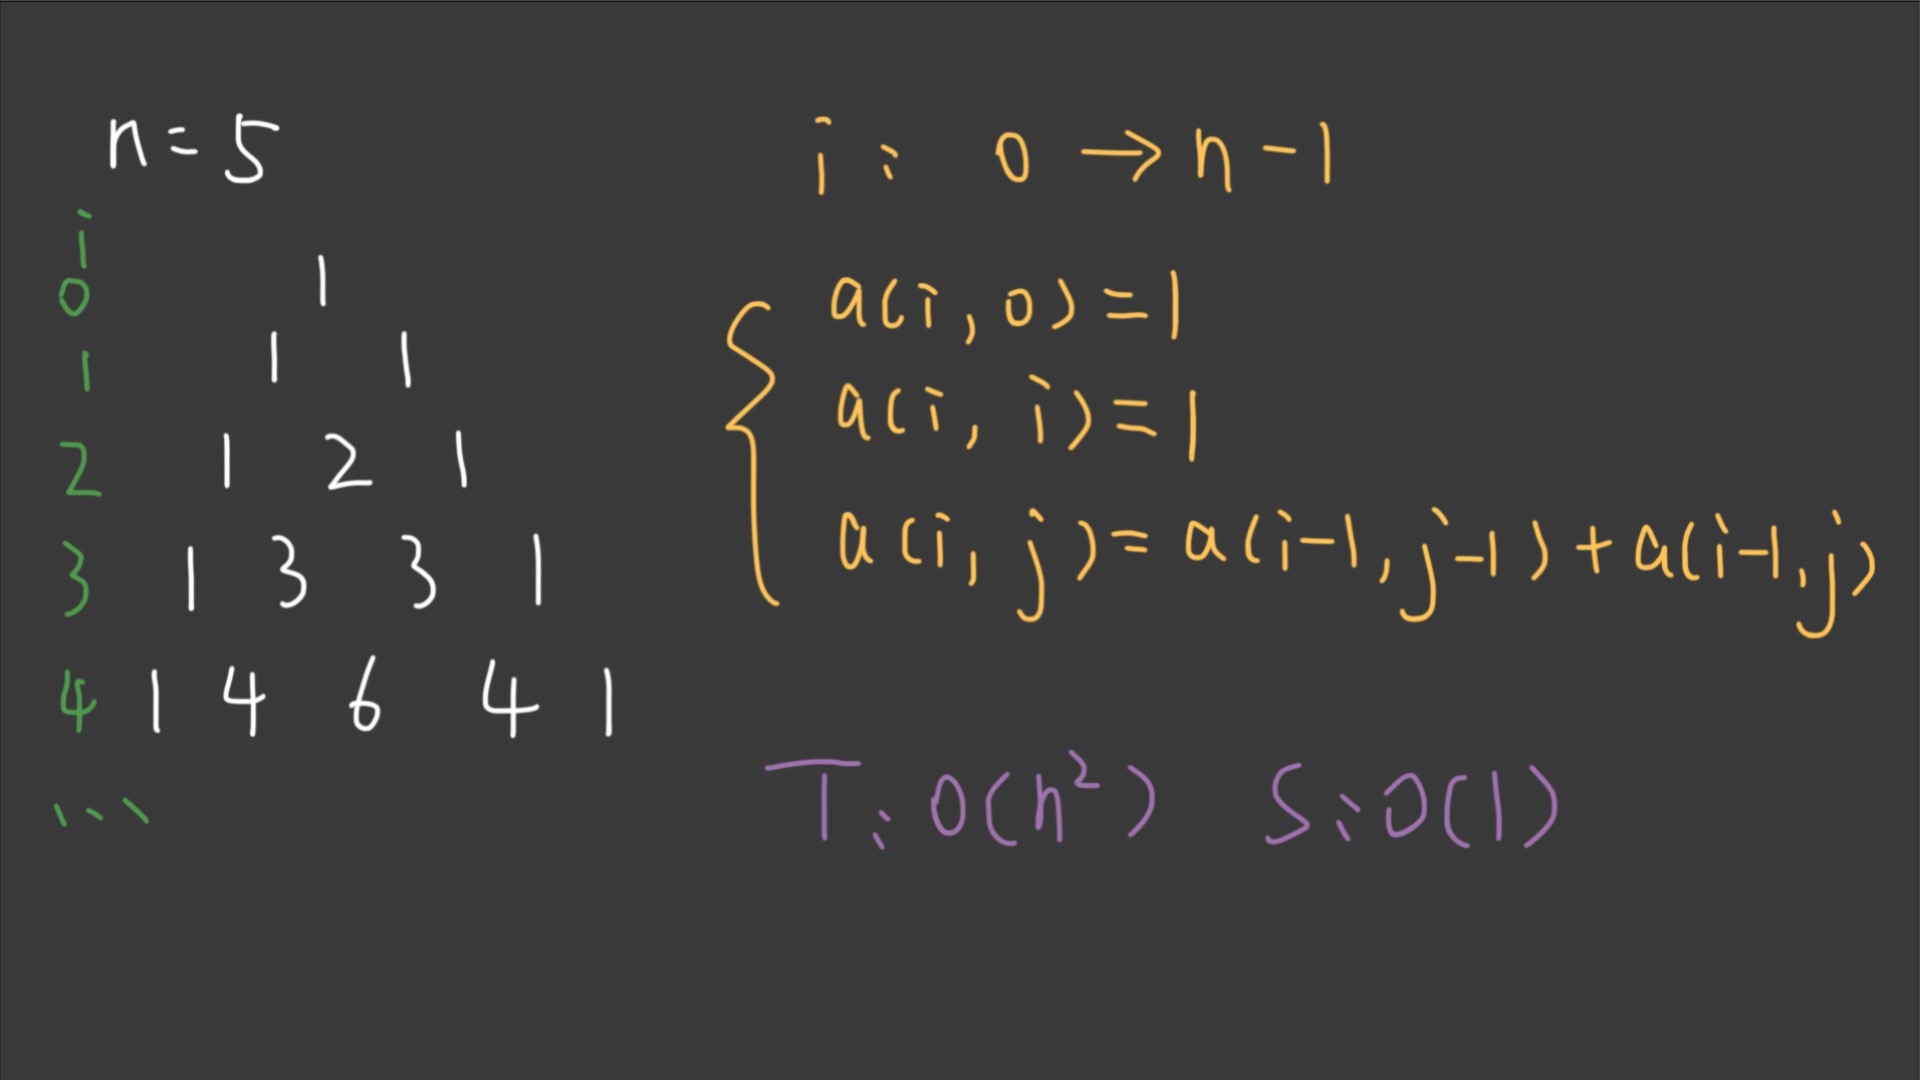 n = 5
i
0 1
1 1 1
2 1 2 1
3 1 3 3 1
4 1 4 6 4 1
...
i : 0 → n - 1
a(i, 0) = 1
a(i, i) = 1
a(i, j) = a(i-1, j-1) + a(i-1, j)
T: O(n²) S: O(1)